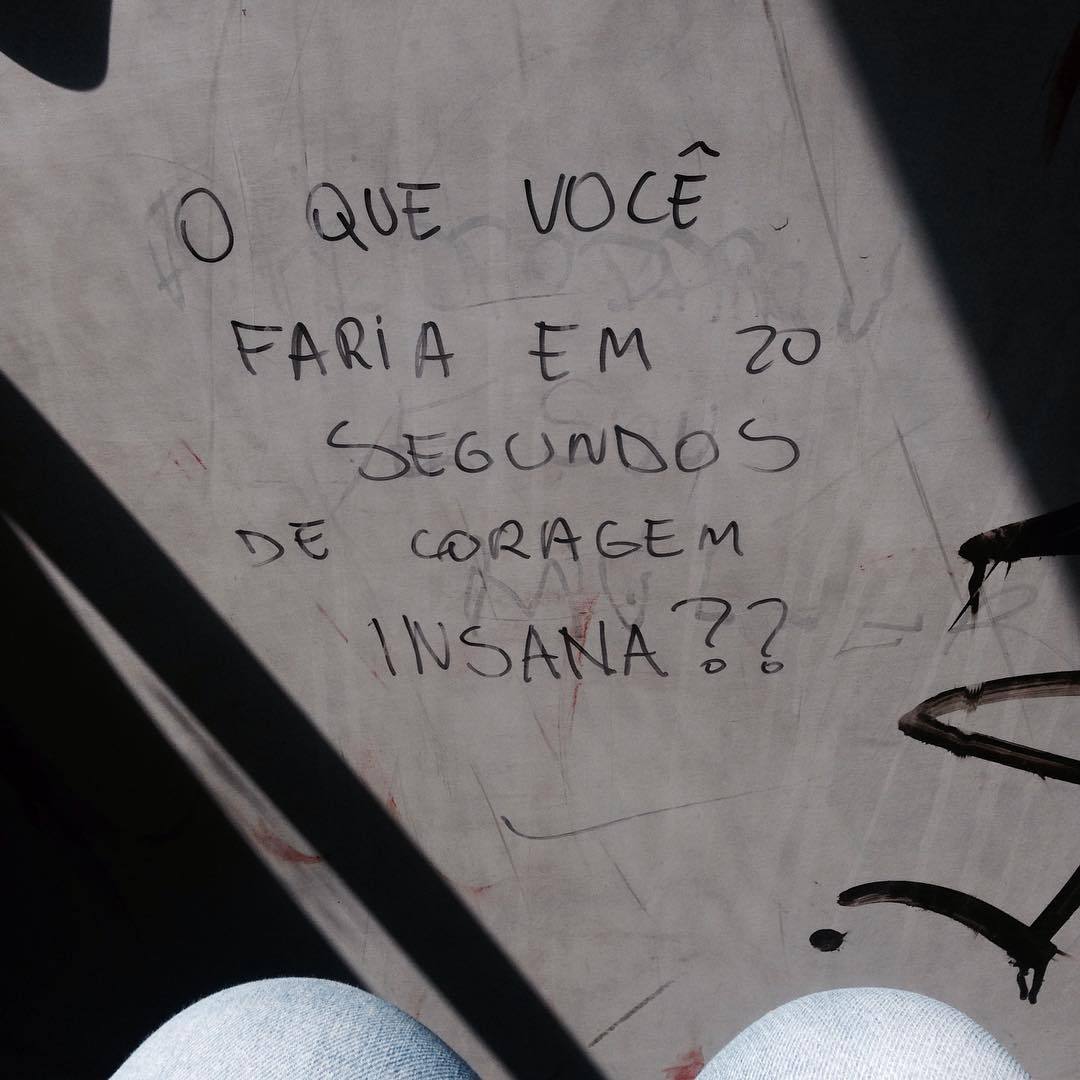 O QUE VOCÊ
FARIA EM 20
SEGUNDOS
DE CORAGEM
INSANA??